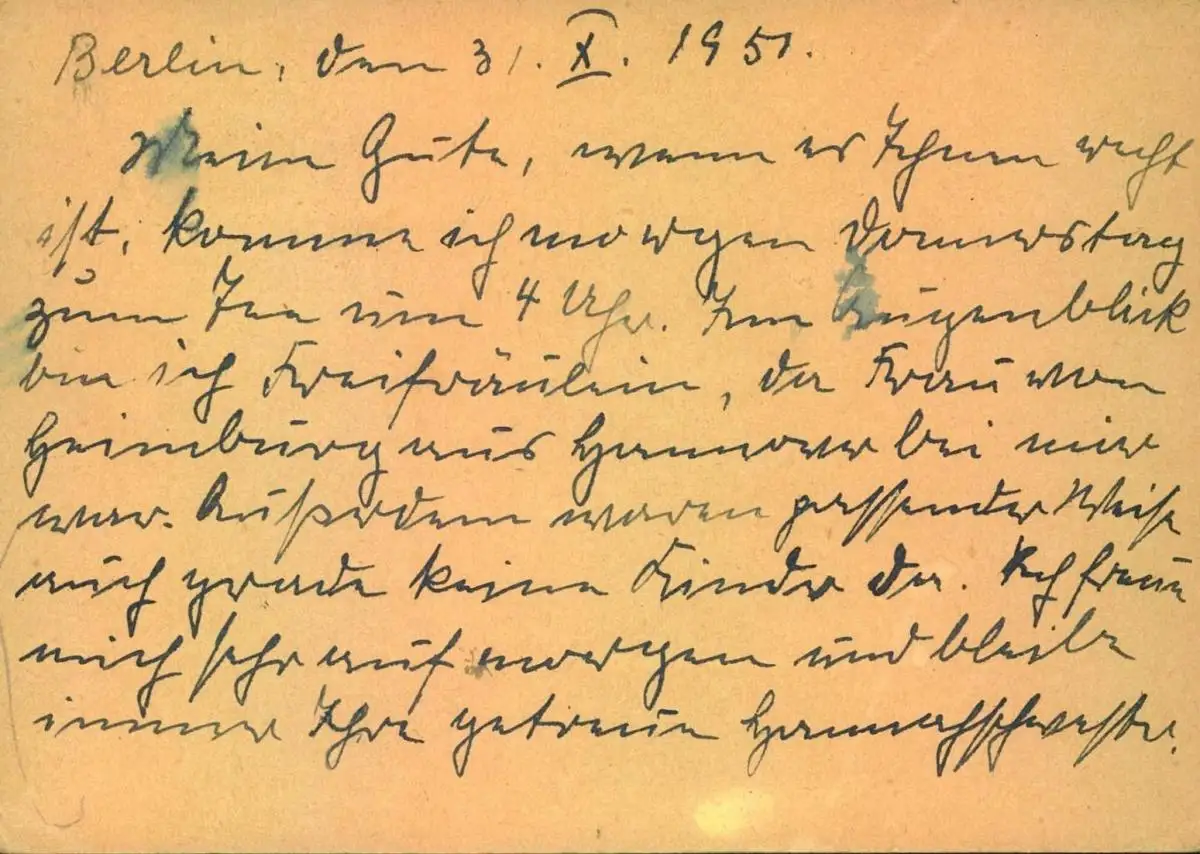 Berlin, den 31. X. 1951.
Meine Gute, wenn es Ihnen recht
ist, komme ich morgen Donnerstag
zum Tee um 4 Uhr. Im Augenblick
bin ich Freifräulein, da Frau von
Heimburg aus Hannover bei mir
war. Außerdem waren passender Weise
auch grade keine Kinder da. Ich freue
mich sehr auf morgen und bleibe
immer Ihre getreue Hannahschwester.